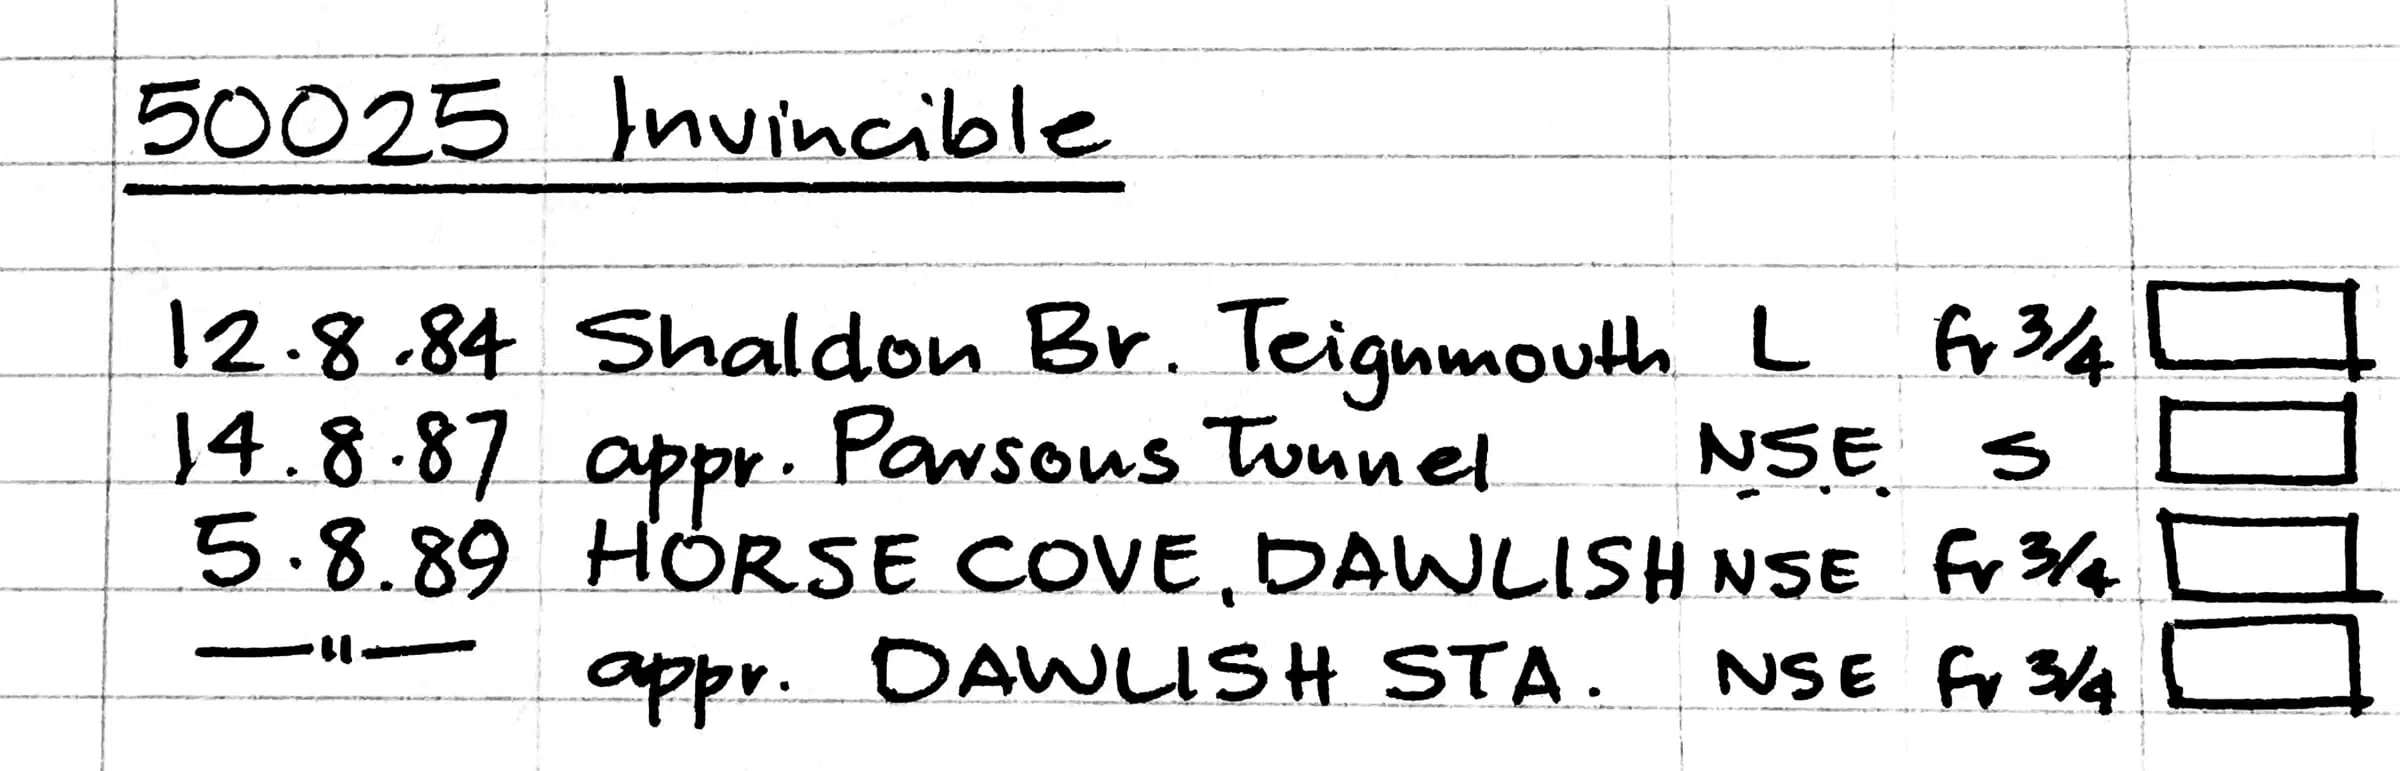 50025 Invincible
12.8.84 Shaldon Br. Teignmouth L fr 3/4
14.8.87 appr. Parsons Tunnel N.S.E. S
5.8.89 HORSE COVE, DAWLISH NSE fr 3/4
—"— appr. DAWLISH STA. NSE fr 3/4